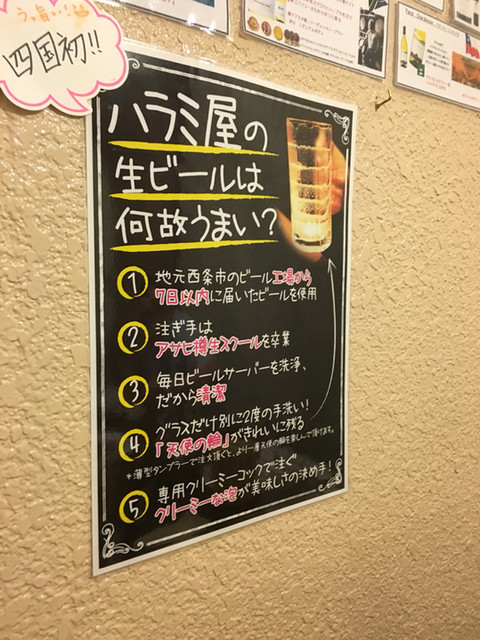 うっ旨い!!
四国初!!
ハラミ屋の
生ビールは
何故うまい?
1 地元西条市のビール工場から
7日以内に届いたビールを使用
2 注ぎ手は
アサヒ樽生スクールを卒業
3 毎日ビールサーバーを洗浄、
だから清潔
4 グラスだけ別に2度の手洗い!
「天使の輪」がきれいに残る
*薄型タンブラーで注文頂くと、より一層天使の輪を楽しんで頂けます。
5 専用クリーミーコックで注ぐ
クリーミーな泡が美味しさの決め手!